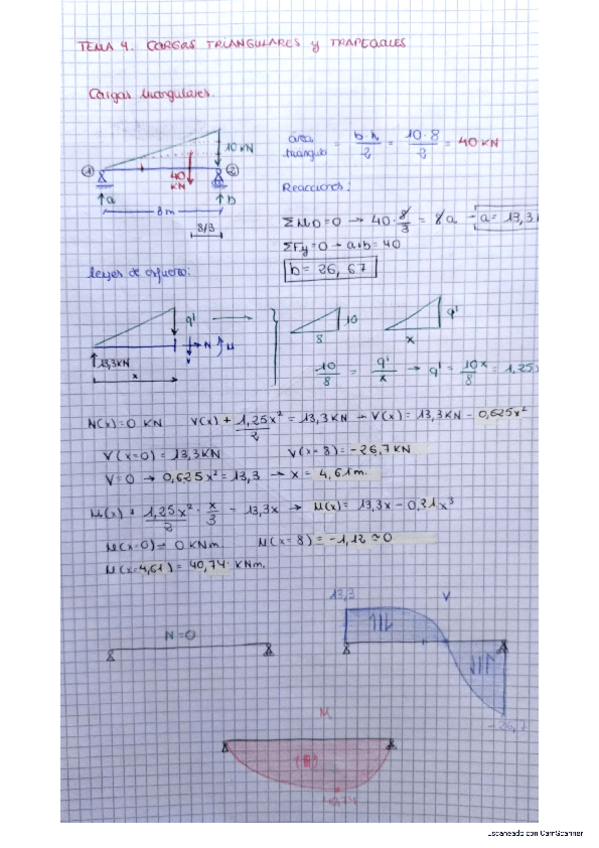 TEMA 4. CARGAS TRIANGULARES y TRAPECIALES
Cargas triangulares.
10 kN
1
40 kN
2
a
b
8m
8/3
área triángulo = b·h/2 = 10·8/2 = 40 kN
Reacciones:
ΣM0=0 → 40·8/3 = 8a → a= 13,3
ΣFy=0 → a+b=40
b= 26,67
leyes de esfuerzo:
q'
N
M
V
13,3kN
x
10
8
q'
x
10/8 = q'/x → q' = 10x/8 = 1,25x
N(x)=0 kN V(x) + 1,25x²/2 = 13,3kN → V(x) = 13,3kN - 0,625x²
V(x=0) = 13,3kN V(x=8) = -26,7kN
V=0 → 0,625x² = 13,3 → x = 4,61m.
M(x) + 1,25x²/2 · x/3 - 13,3x → M(x)= 13,3x - 0,21x³
M(x=0)= 0 kNm. M(x=8) = -1,12 ≈ 0
M(x=4,61) = 40,74 kNm.
N=0
13,3
V
-26,7
M
(+)
40,74
Escaneado con CamScanner